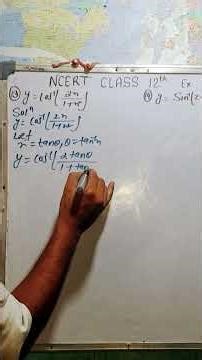 NCERT CLASS 12th Ex
(13) y = Cos⁻¹(2x/1+x²)
(14) y = Sin⁻¹(2x
Solⁿ
y = Cos⁻¹(2x/1+x²)
Let
x = tanθ, θ = tan⁻¹x
y = Cos⁻¹(2 tanθ/1+tan